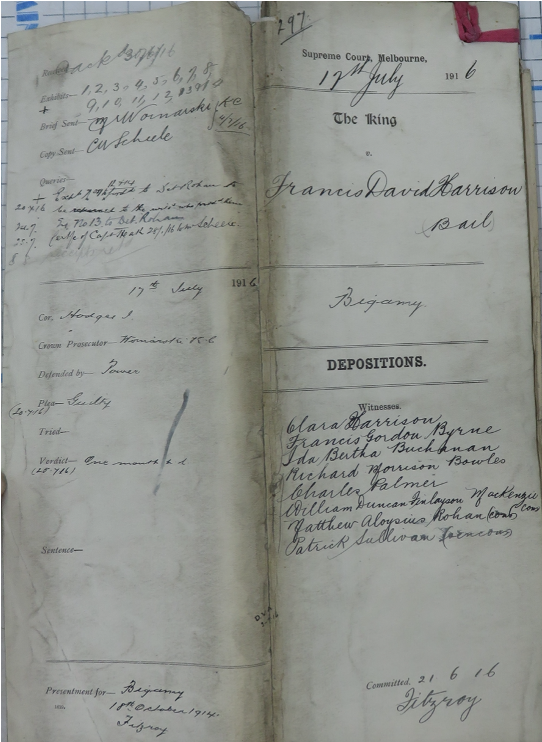 297
Supreme Court, Melbourne,
17th July 1916
The King
v.
Francis David Harrison
(Bail)
Bigamy
DEPOSITIONS.
Witnesses.
Clara Harrison
Francis Gordon Byrne
Ida Bertha Buchanan
Richard Morrison Bowles
Charles Palmer
William Duncan Finlayson MacKenzie
Matthew Aloysius Rohan (cons
Patrick Sullivan
Committed, 21 6 16
Fitzroy
Back 30/6/16
Exhibits— 1, 2, 3, 4, 5, 6, 7, 8
+ 9, 10, 11, 12, 13
Brief Sent— Mr Woinarski KC
Copy Sent— CW Scheele
Queries—
to Det Rohan to
20.7.16 be returned to the
24.7. Ex No 13 to Det. Rohan
25.7. Capt. Heath
17th July 1916
Cor. Hodges J.
Crown Prosecutor— Woinarski KC
Defended by— Power
Plea— Guilty
(20.7.16)
Tried—
Verdict— One month
(25.7.16)
Sentence—
Presentment for— Bigamy
18th October 1914
Fitzroy